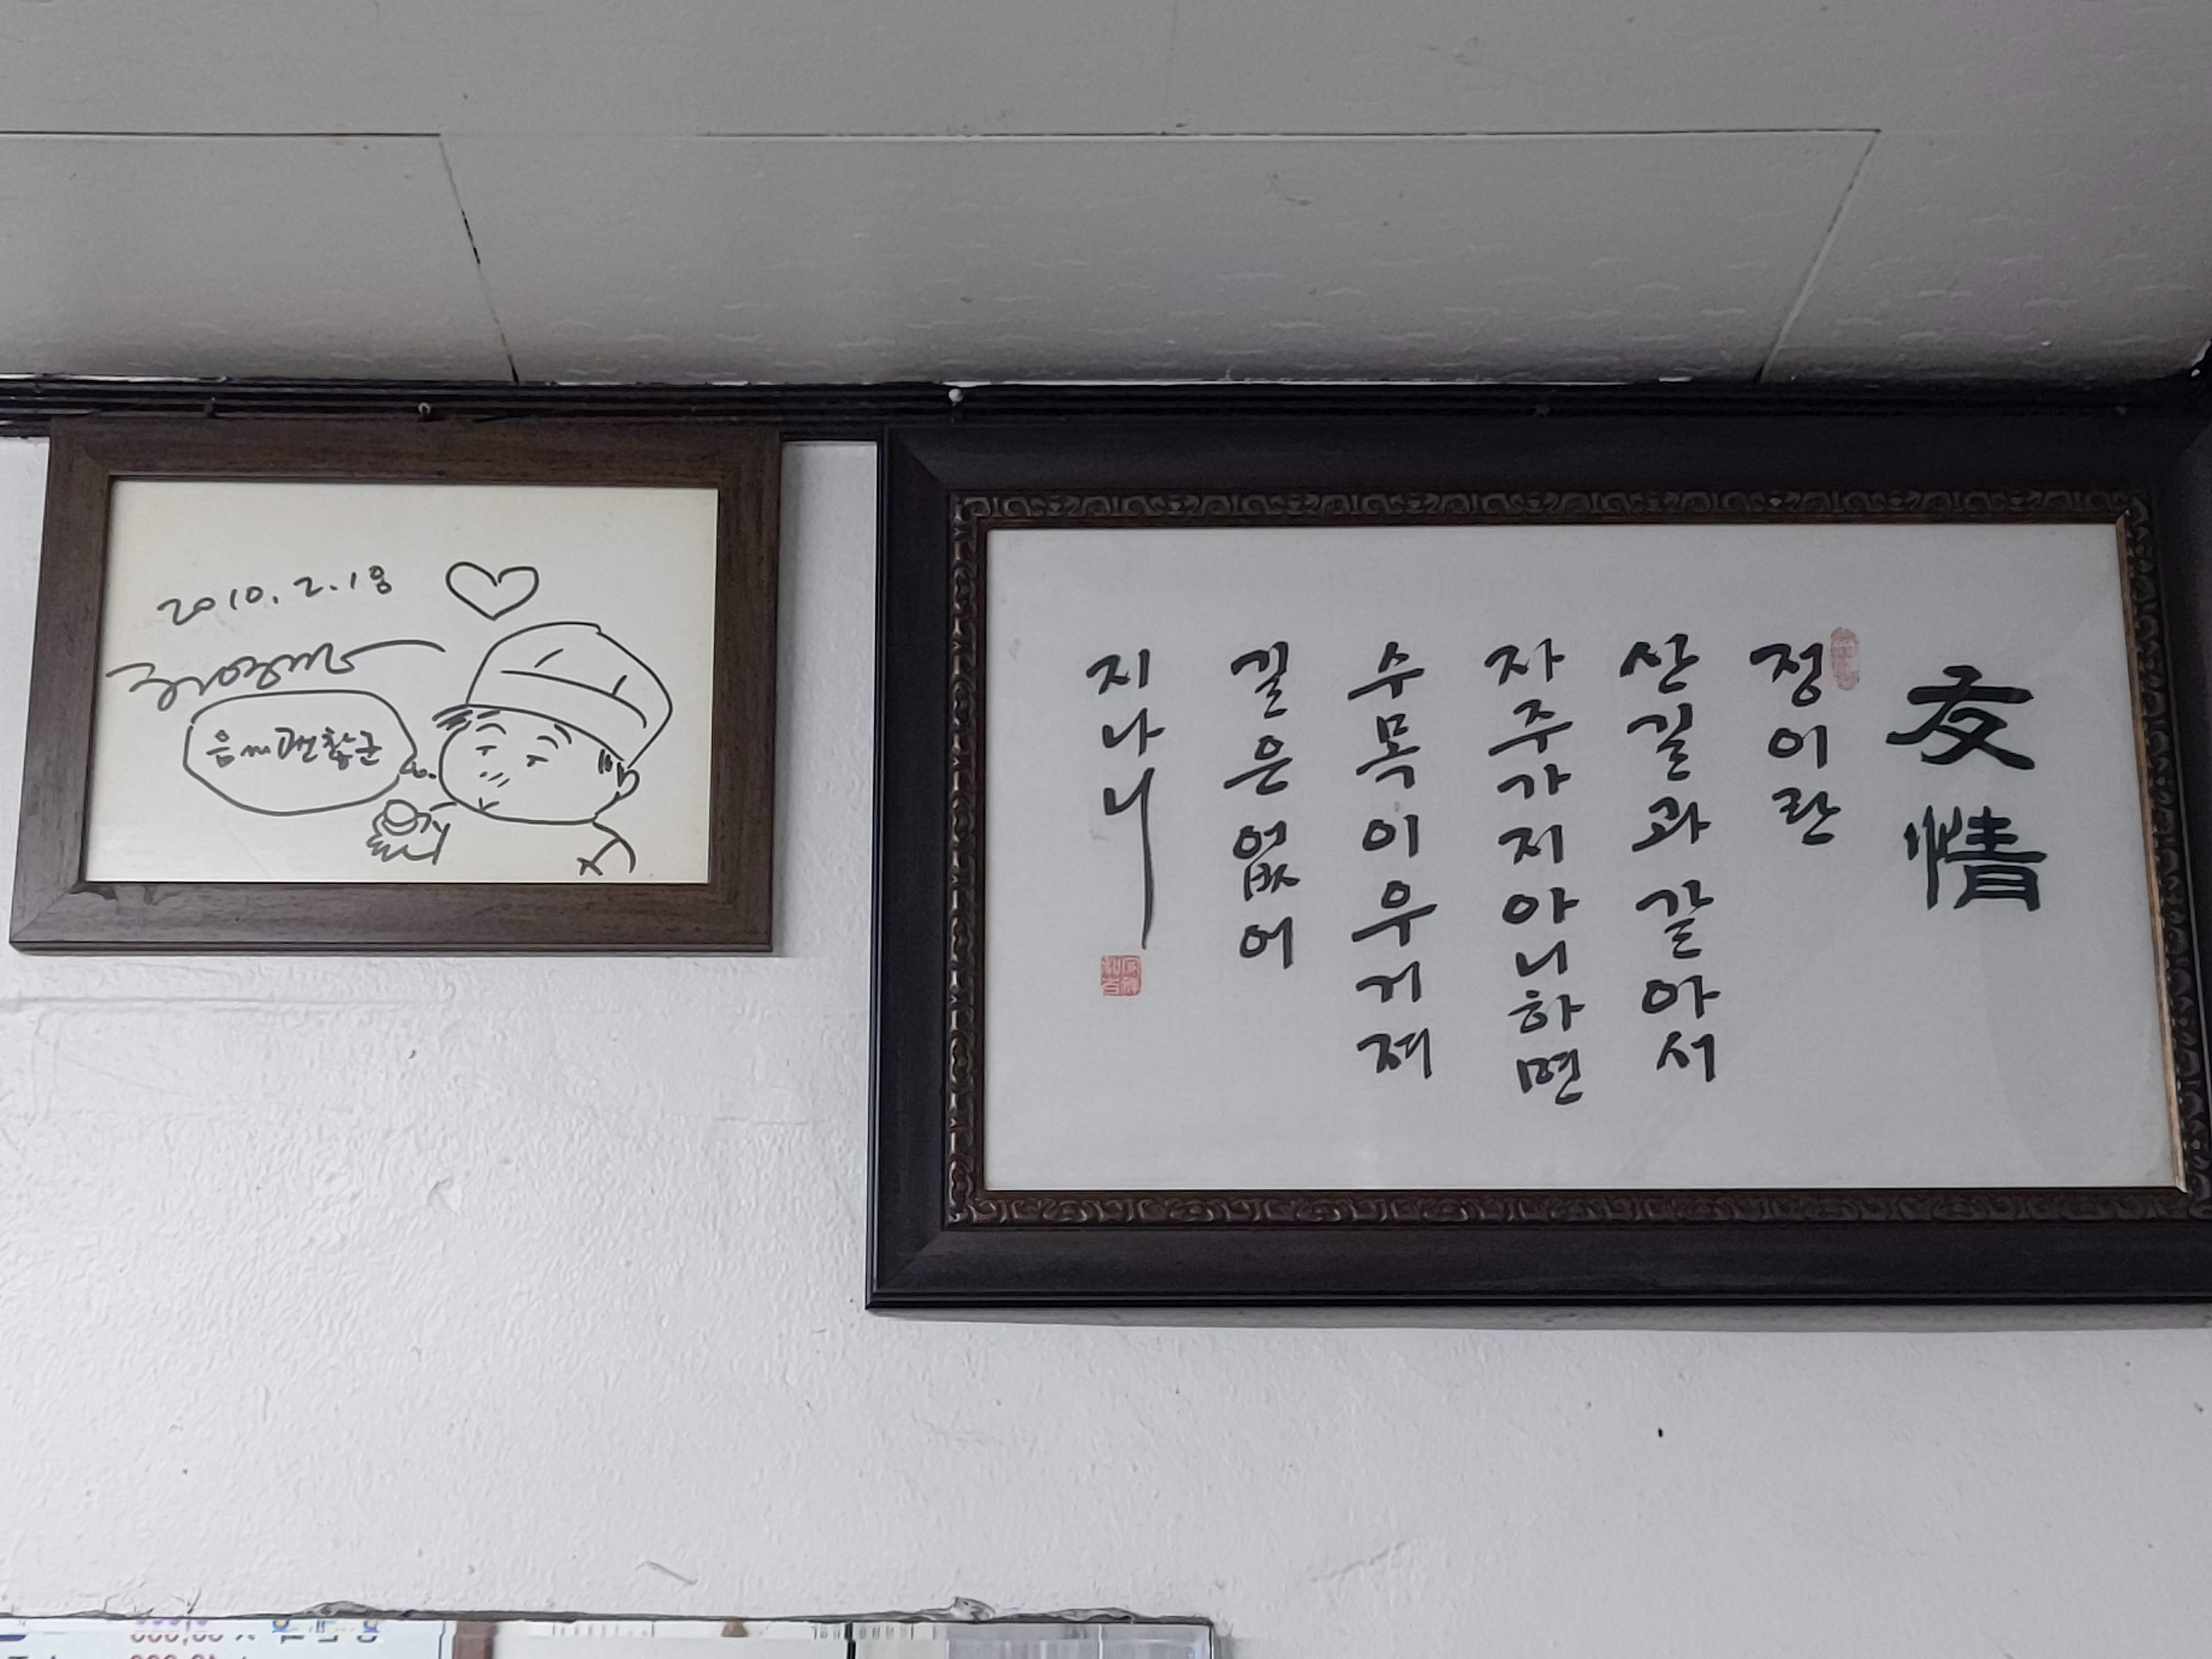 2010. 2. 18
음 괜찮군
友情
정이란
산길과 같아서
자주가지아니하면
수목이우거져
길은없어
지나니